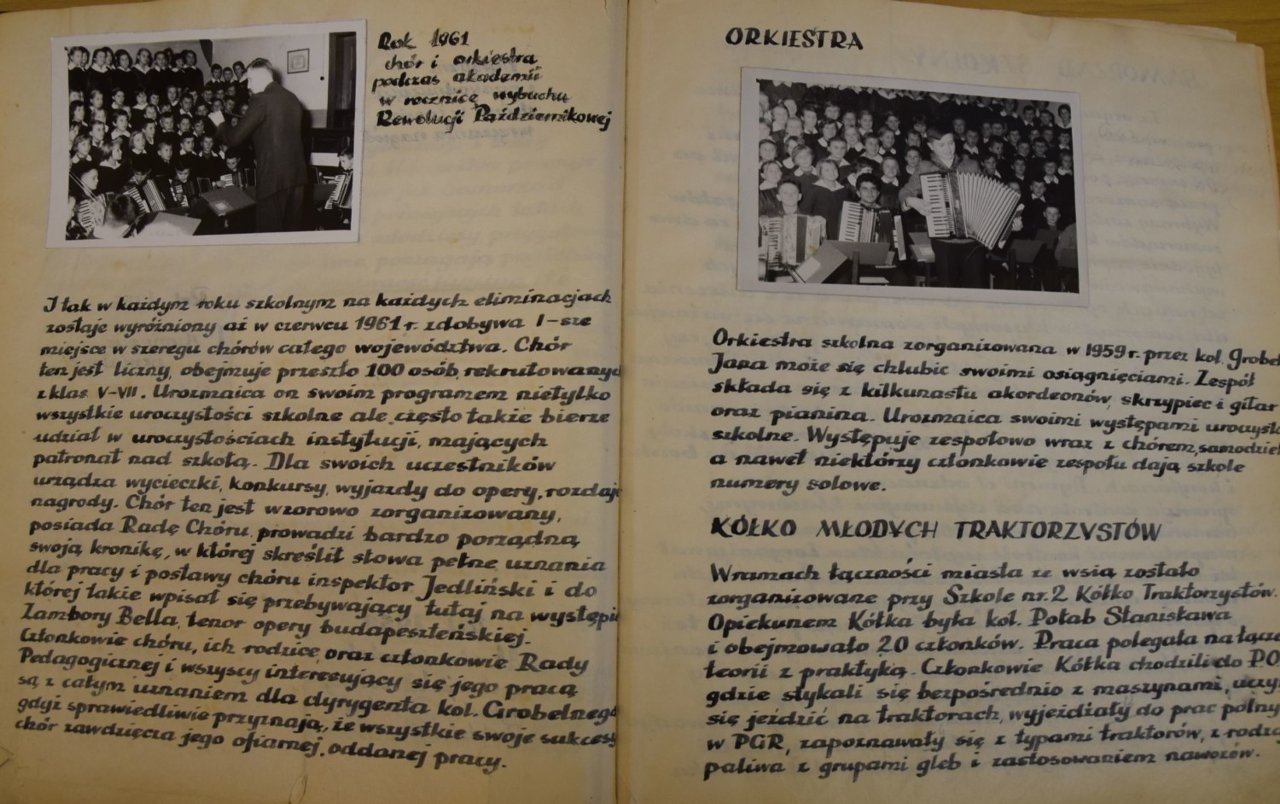 Rok 1961
chór i orkiestra
podczas akademii
w rocznicę wybuchu
Rewolucji Październikowej
I tak w każdym roku szkolnym na każdych eliminacjach
zostaje wyróżniony aż w czerwcu 1961 r. zdobywa I-sze
miejsce w szeregu chórów całego województwa. Chór
ten jest liczny, obejmuje przeszło 100 osób, rekrutowanych
z klas V-VII. Urozmaica on swoim programem nietylko
wszystkie uroczystości szkolne ale często także bierze
udział w uroczystościach instytucji, mających
patronat nad szkołą. Dla swoich uczestników
urządza wycieczki, konkursy, wyjazdy do opery, rozdaje
nagrody. Chór ten jest wzorowo zorganizowany,
posiada Radę Chóru, prowadzi bardzo porządną
swoją kronikę, w której skreślił słowa pełne uznania
dla pracy i postawy chóru inspektor Jedliński i do
której także wpisał się przebywający tutaj na występie
Zambory Bella, tenor opery budapeszteńskiej.
Członkowie chóru, ich rodzice, oraz członkowie Rady
Pedagogicznej i wszyscy interesujący się jego pracą
są z całym uznaniem dla dyrygenta kol. Grobelnego
gdyż sprawiedliwie przyznają, że wszystkie swoje sukcesy
chór zawdzięcza jego ofiarnej, oddanej pracy.
ORKIESTRA
Orkiestra szkolna zorganizowana w 1959 r. przez kol. Grobel
Jana może się chlubić swoimi osiągnięciami. Zespół
składa się z kilkunastu akordeonów, skrzypiec i gitar
oraz pianina. Urozmaica swoimi występami uroczysto
szkolne. Występuje zespołowo wraz z chórem, samodziel
a nawet niektórzy członkowie zespołu dają szkole
numery solowe.
KÓŁKO MŁODYCH TRAKTORZYSTÓW
W ramach łączności miasta ze wsią zostało
zorganizowane przy Szkole nr. 2 Kółko Traktorzystów.
Opiekunem Kółka była kol. Połab Stanisława
i obejmowało 20 członków. Praca polegała na łącze
teorii z praktyką. Członkowie Kółka chodzili do PO
gdzie stykali się bezpośrednio z maszynami, uczy
się jeździć na traktorach, wyjeżdżały do prac polny
w PGR, zapoznawały się z typami traktorów, z rodza
paliwa z grupami gleb i zastosowaniem nawozów.